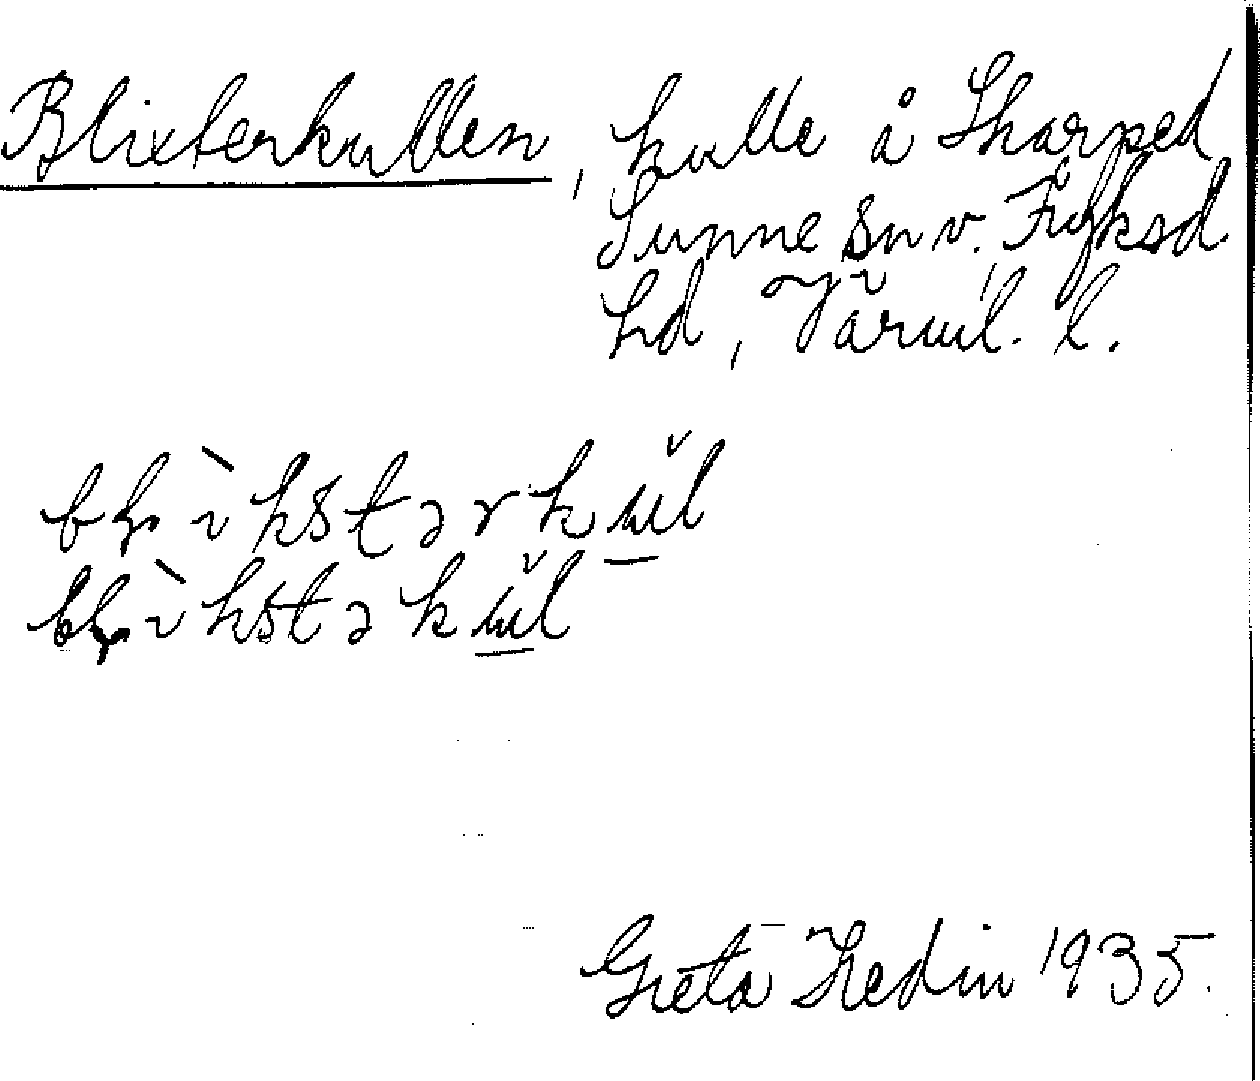 Blixterkullen, kulle å Skarped
Sunne sn v. Fryksd.
hd, Värml. l.
bḷìkstərkul
bḷìkstəkul
Greta Hedin 1935.